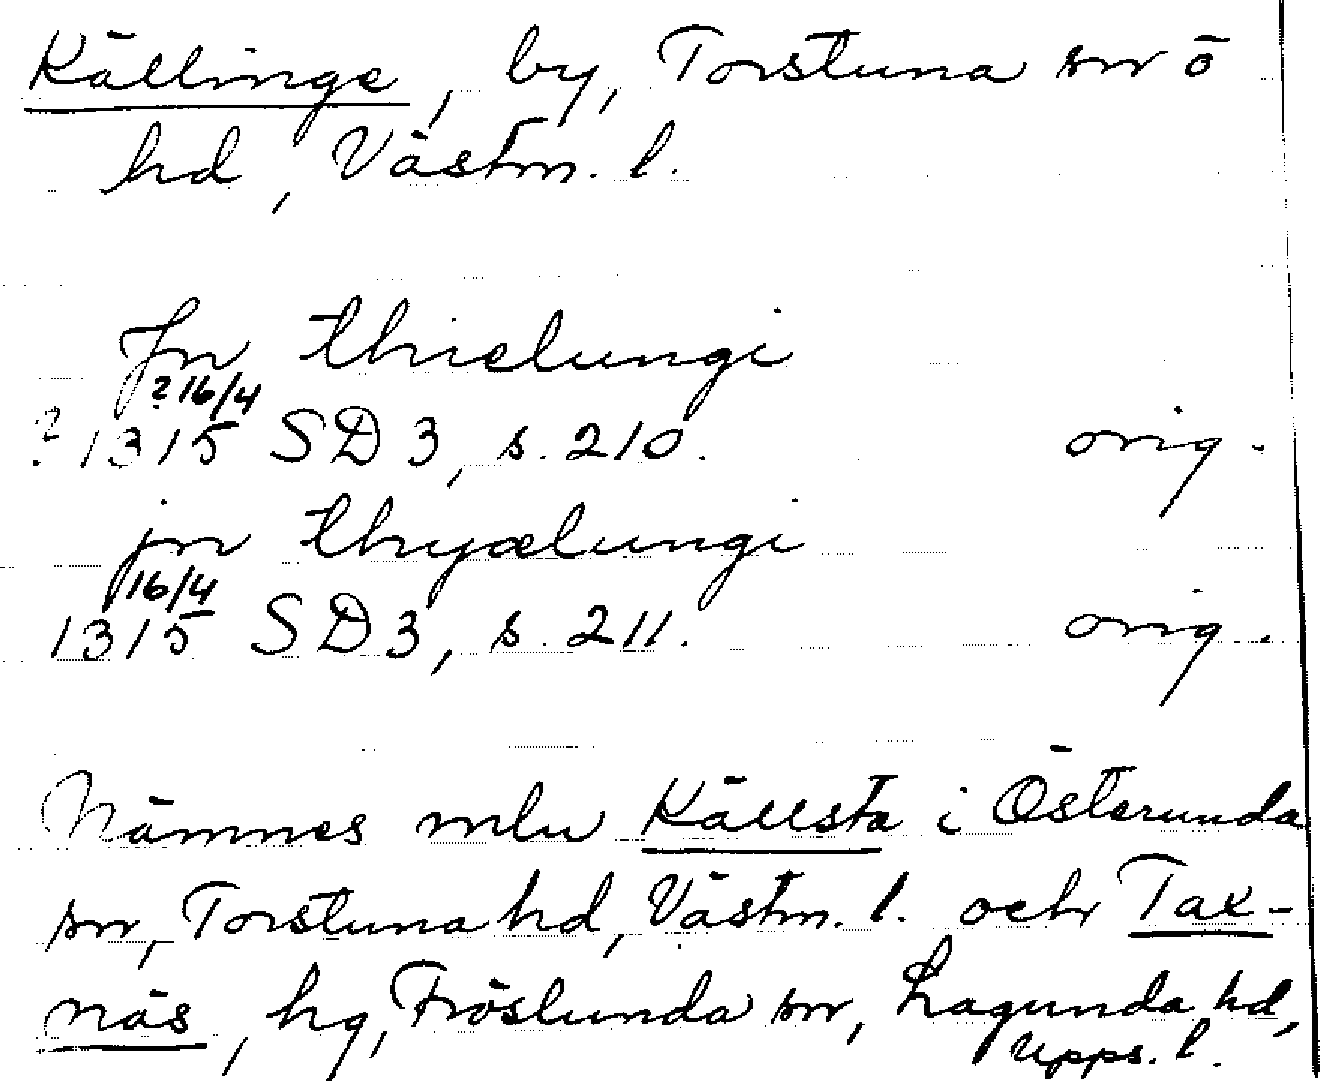 Källinge, by, Torstuna sn o
hd, Västm. l.
Jn thielungi
? 16/4
? 1315 SD 3, s. 210. orig.
jn thyælungi
16/4
1315 SD 3, s. 211. orig.
Nämnes mlu Källsta i Österunda
sn, Torstuna hd, Västm. l. och Tax-
näs, hg, Fröslunda sn, Lagunda hd,
Upps. l.